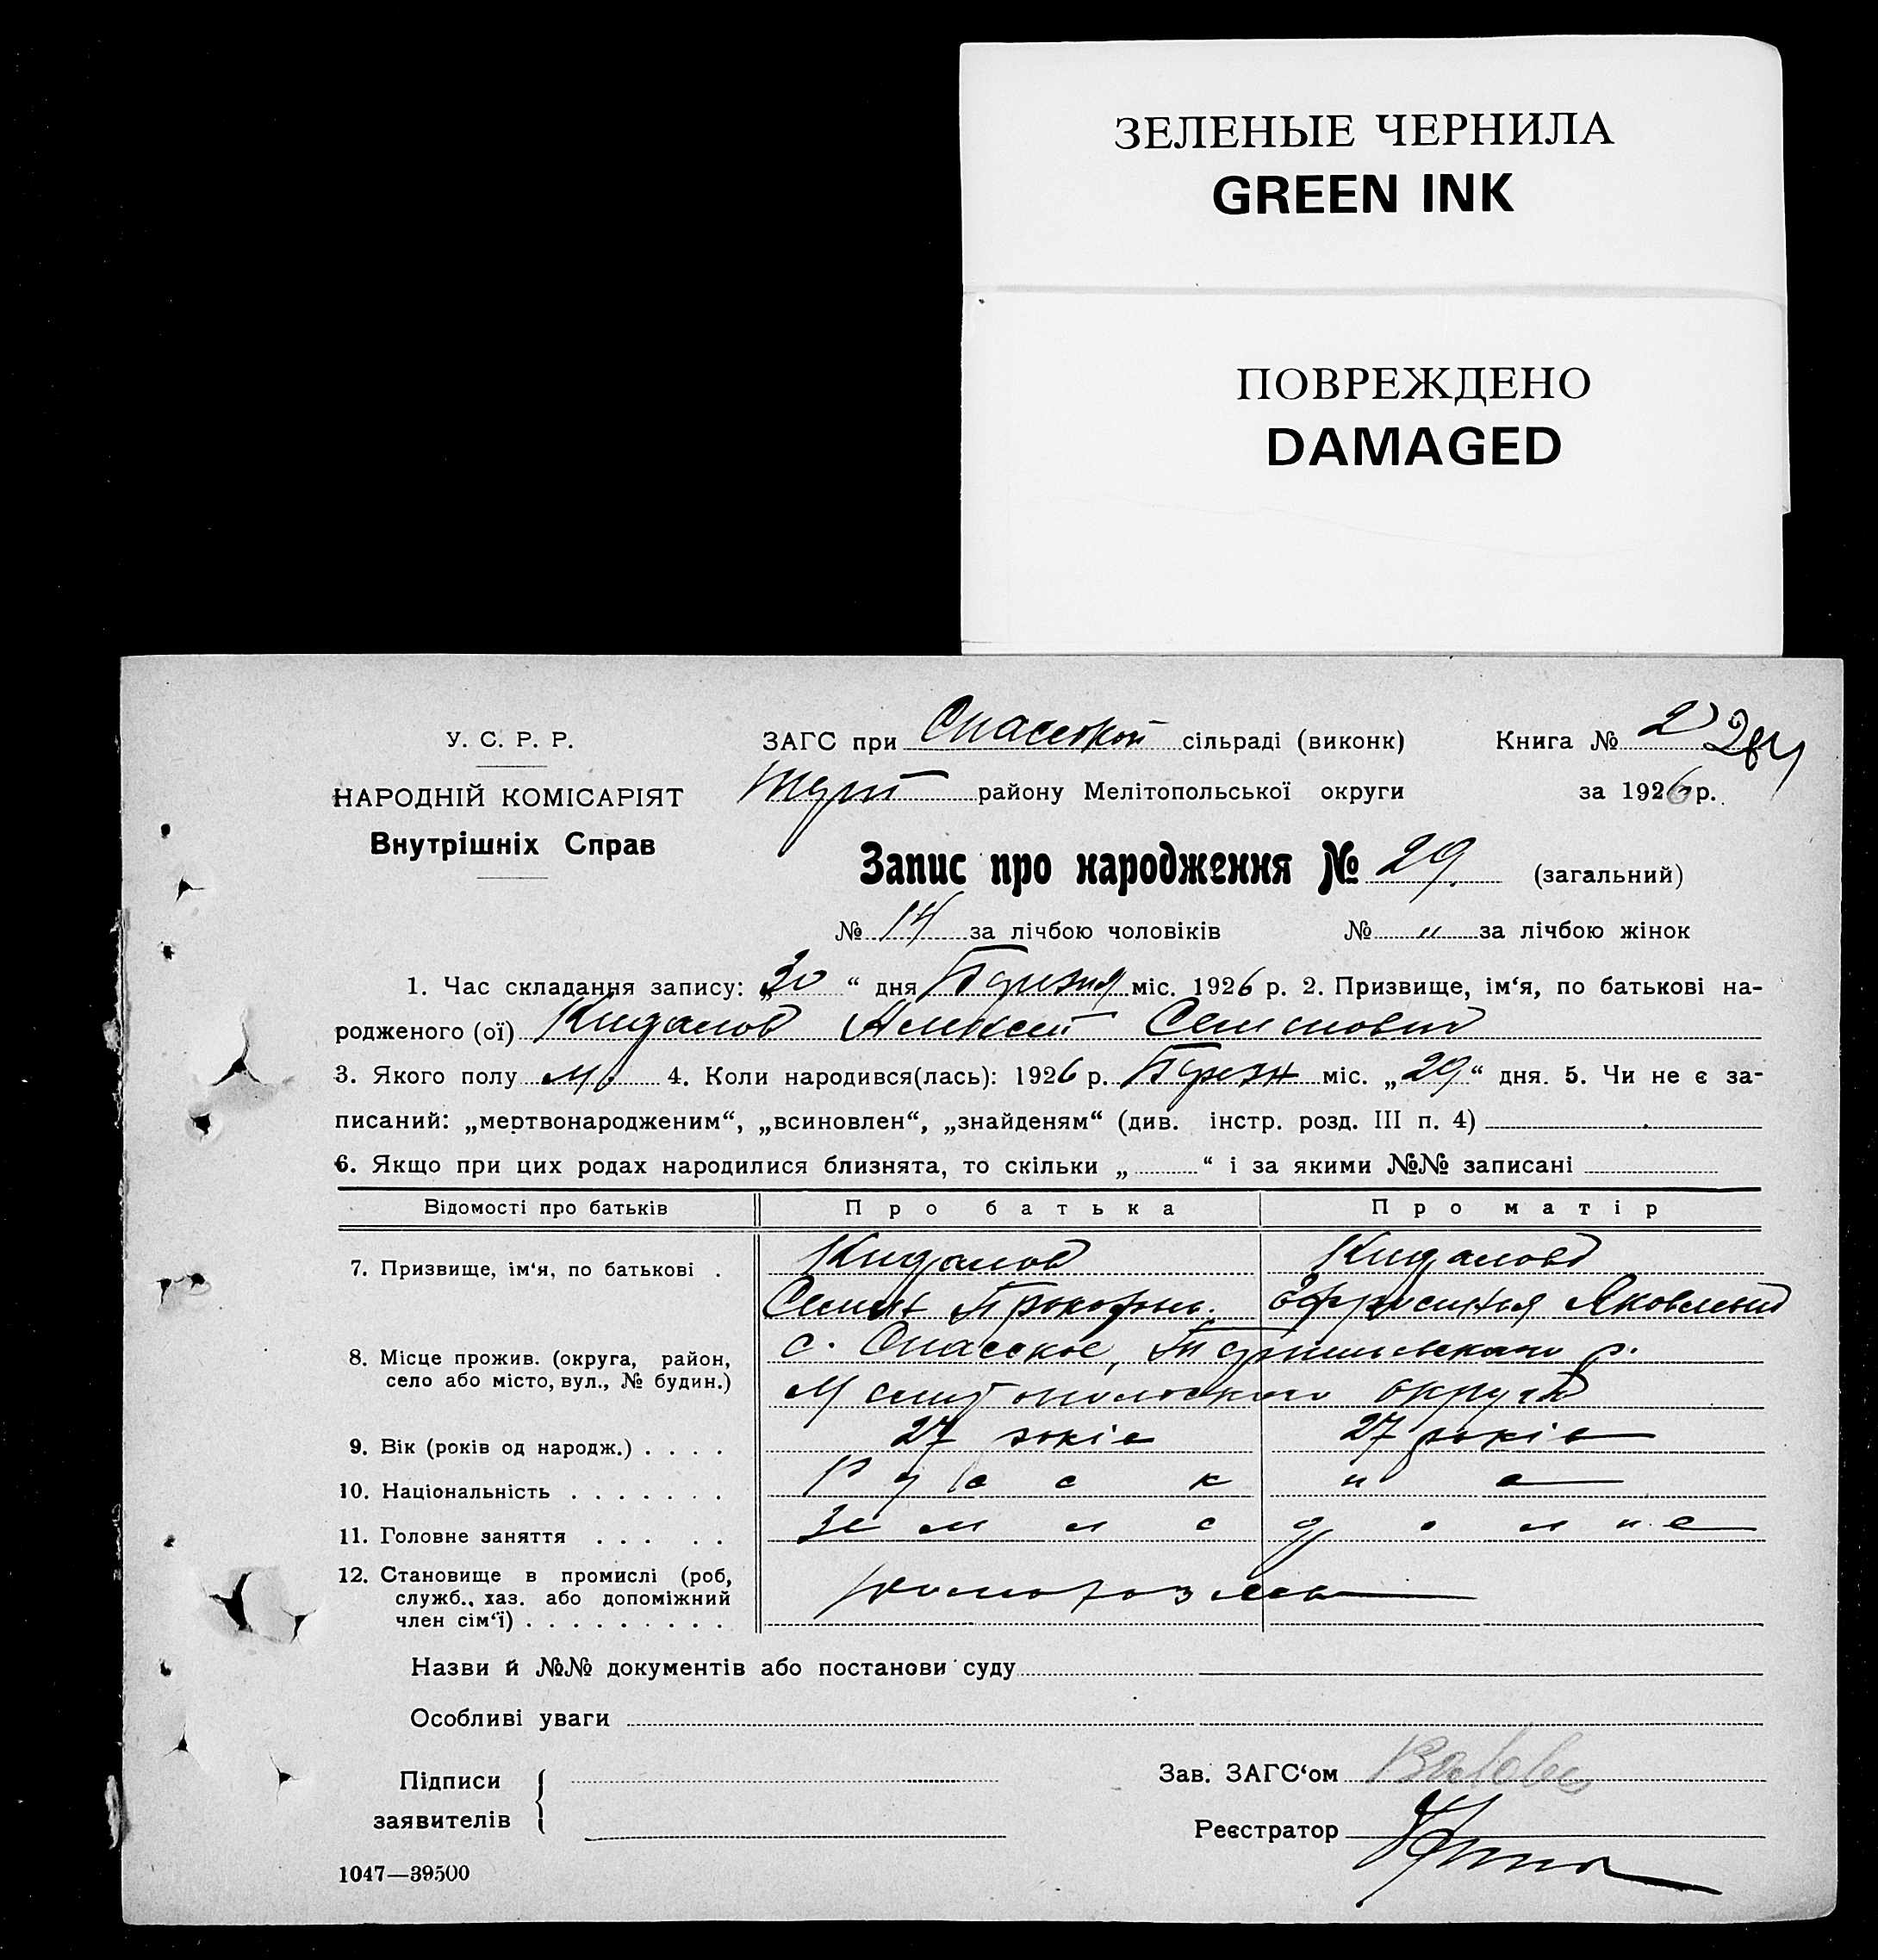 ЗЕЛЕНЫЕ ЧЕРНИЛА
GREEN INK
ПОВРЕЖДЕНО
DAMAGED
У. С. Р. Р.
НАРОДНІЙ КОМІСАРІЯТ
Внутрішніх Справ
ЗАГС при Спасской сільраді (виконк) Книга № 2
району Мелітопольської округи за 1926 р.
Запис про народження № 29 (загальний)
№ 14 за лічбою чоловіків № " за лічбою жінок
1. Час складання запису: „30“ дня Березня міс. 1926 р. 2. Призвище, ім‘я, по батькові на-
родженого (ої) Кидалов Алексей Семенович
3. Якого полу м. 4. Коли народився(лась): 1926 р. Березн міс. „29“ дня. 5. Чи не є за-
писаний: „мертвонародженим“, „всиновлен“, „знайденям“ (див. інстр. розд. III п. 4)
6. Якщо при цих родах народилися близнята, то скільки „ “ і за якими №№ записані
Відомості про батьків Про батька Про матір
7. Призвище, ім‘я, по батькові . Кидалов Кидалова
Семен Прокофьев. Ефросинья Яковлевна
8. Місце прожив. (округа, район, село або місто, вул., № будин.) с. Спасское, р.
Мелитопольского округа
9. Вік (років од народж.) . . . . 27 років 27 років
10. Національність . . . . . . .
11. Головне заняття . . . . .
12. Становище в промислі (роб, служб., хаз. або допоміжний член сім‘ї) . . . . . . . . .
Назви й №№ документів або постанови суду
Особливі уваги
Підписи заявителів
Зав. ЗАГС‘ом
Реєстратор
1047—39500